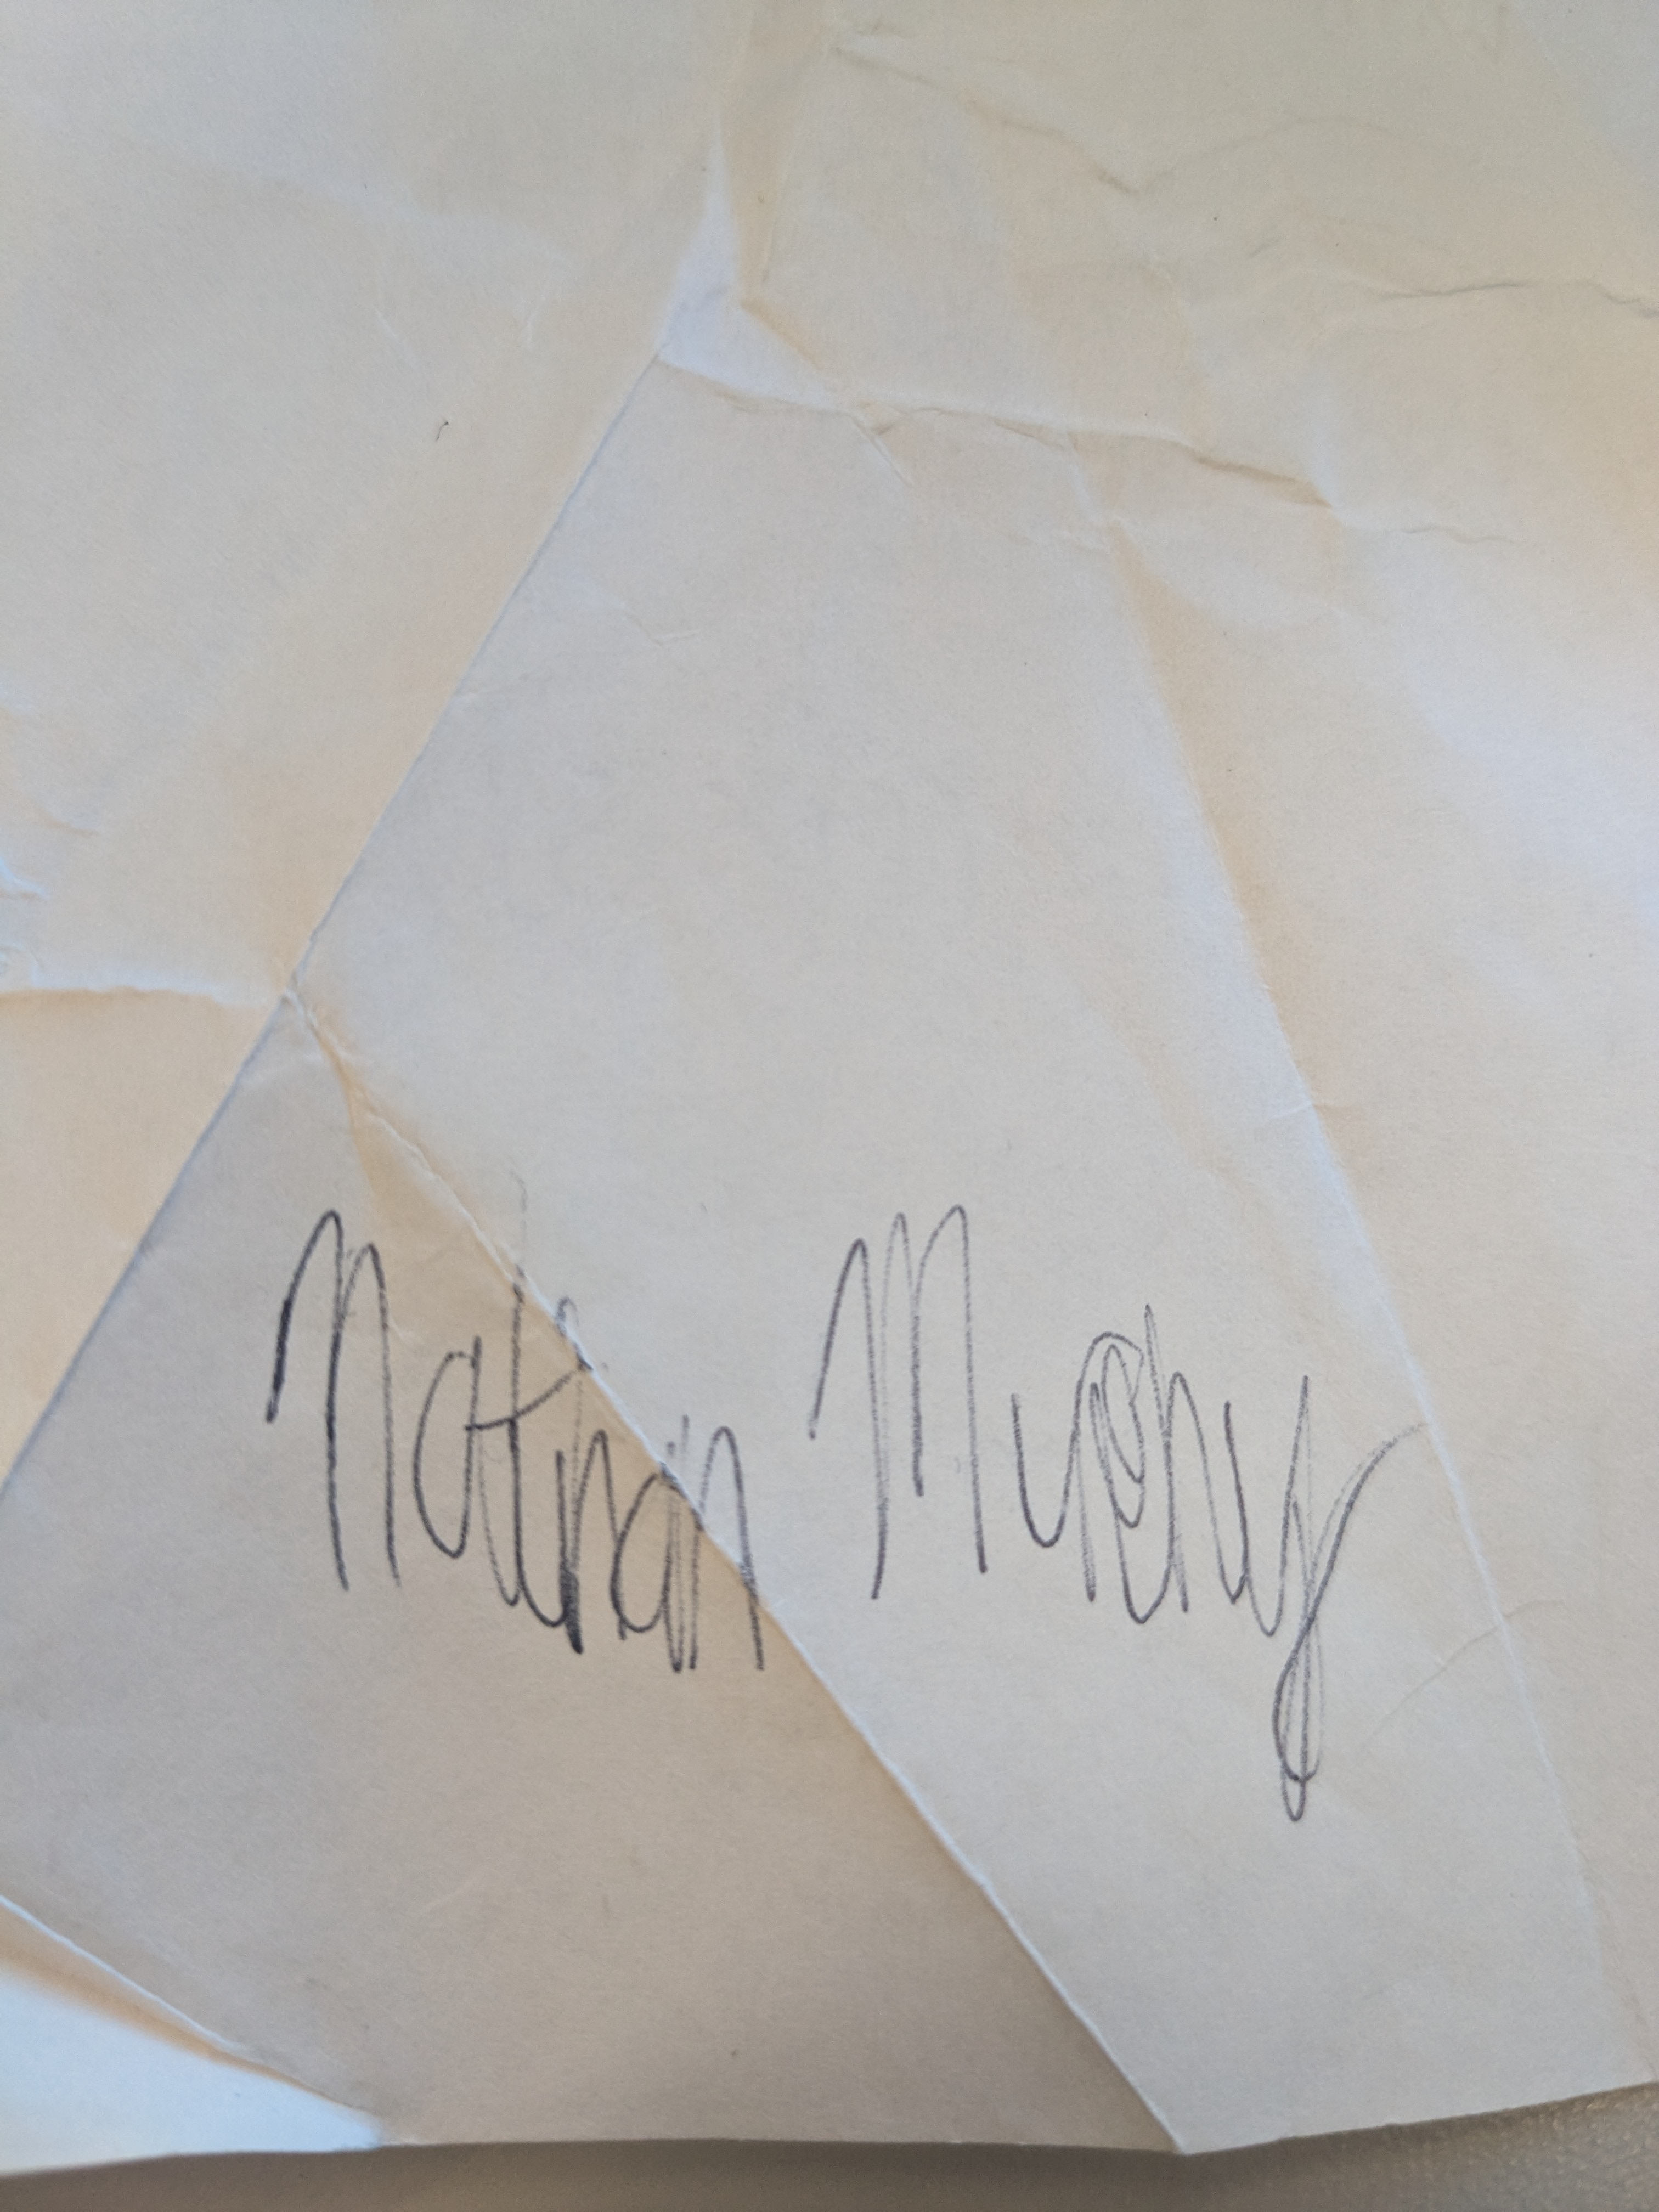 Nathan Murphy